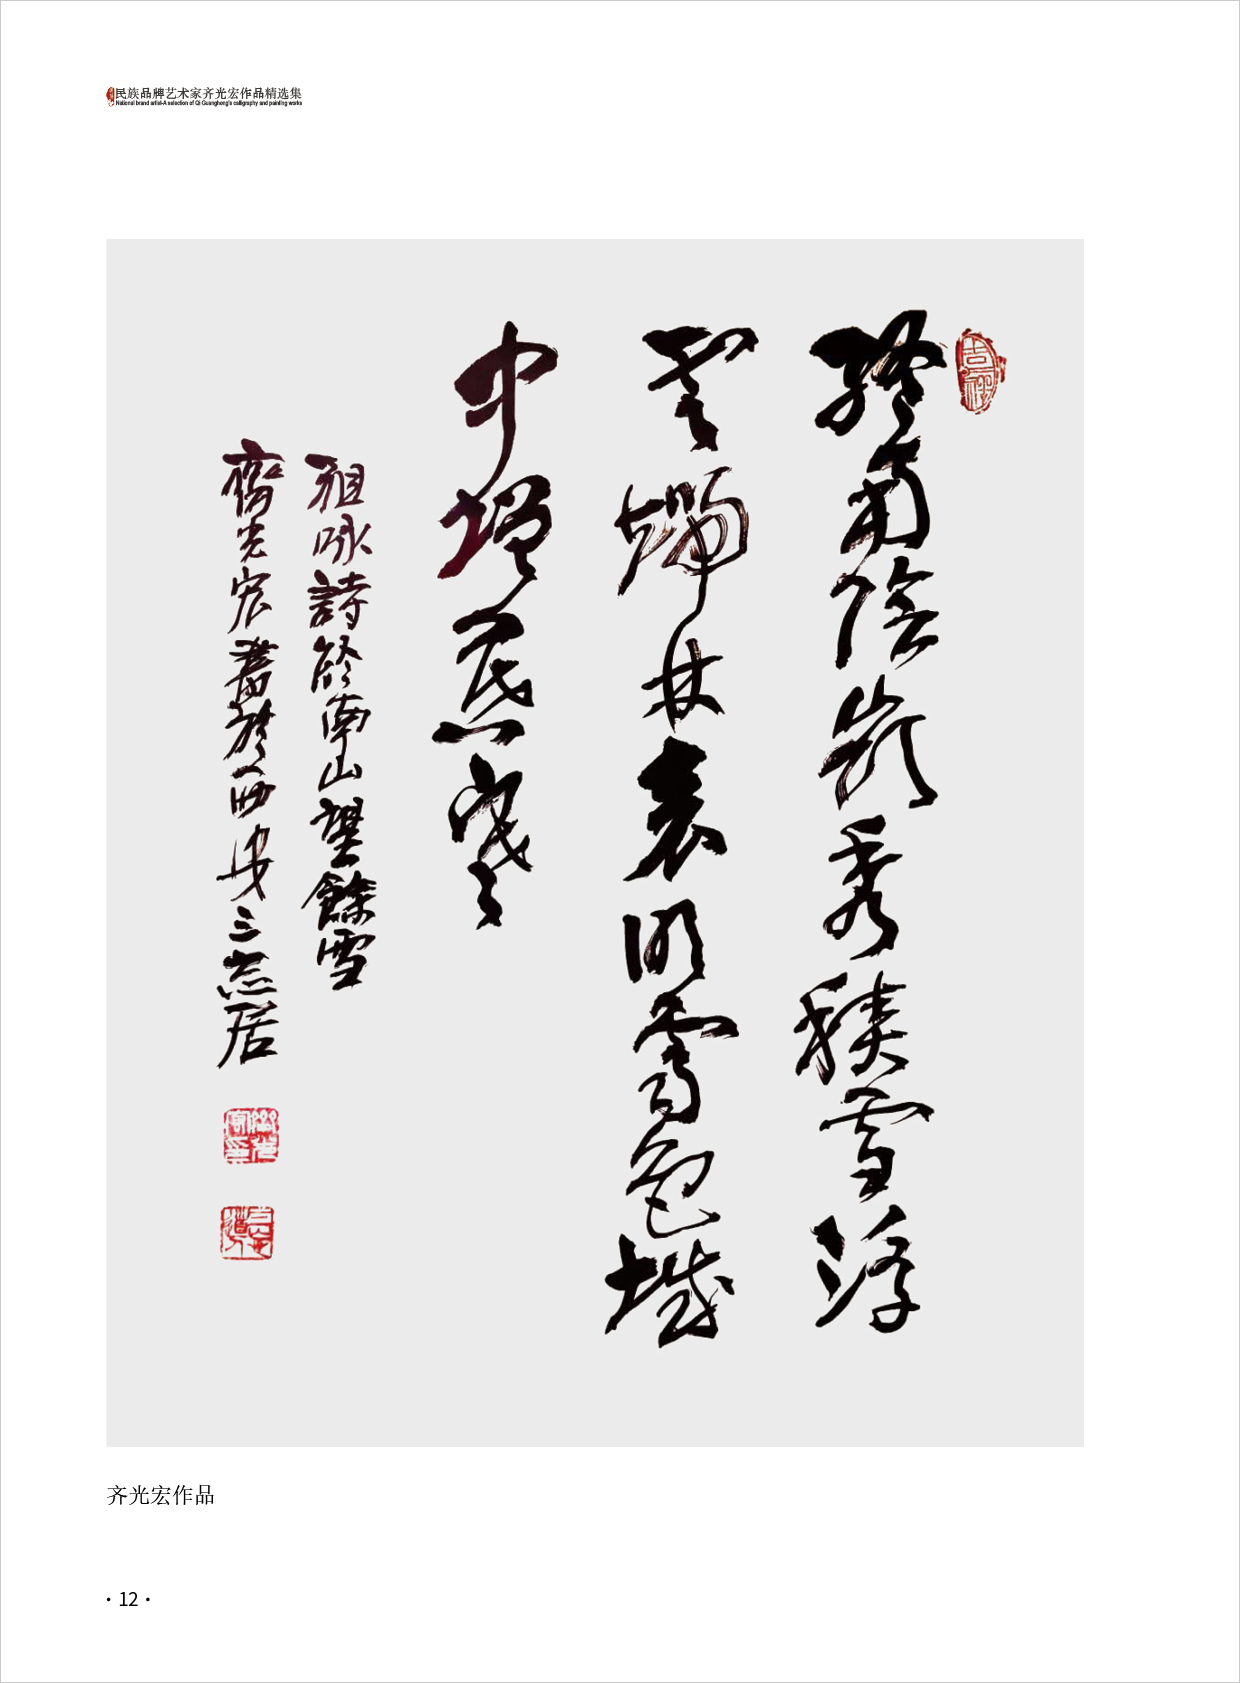 民族品牌艺术家齐光宏作品精选集
National brand artist-A selection of Qi Guanghong's calligraphy and painting works
吉祥
終南陰嶺秀積雪浮
雲端林表明霽色城
中增暮寒
祖咏詩終南山望餘雪
齊光宏書於西安三志居
齐光宏作品
· 12 ·